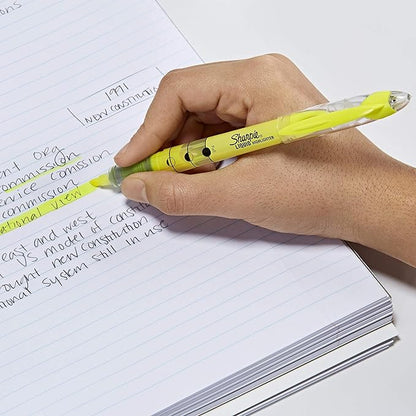 1991
NEW CONSTITUTI
ent org
commission
ervice comission
commission
ational view
east and west
US model of constit
ought new constitution
onal system still in use
Sharpie
LIQUID HIGHLIGHTER